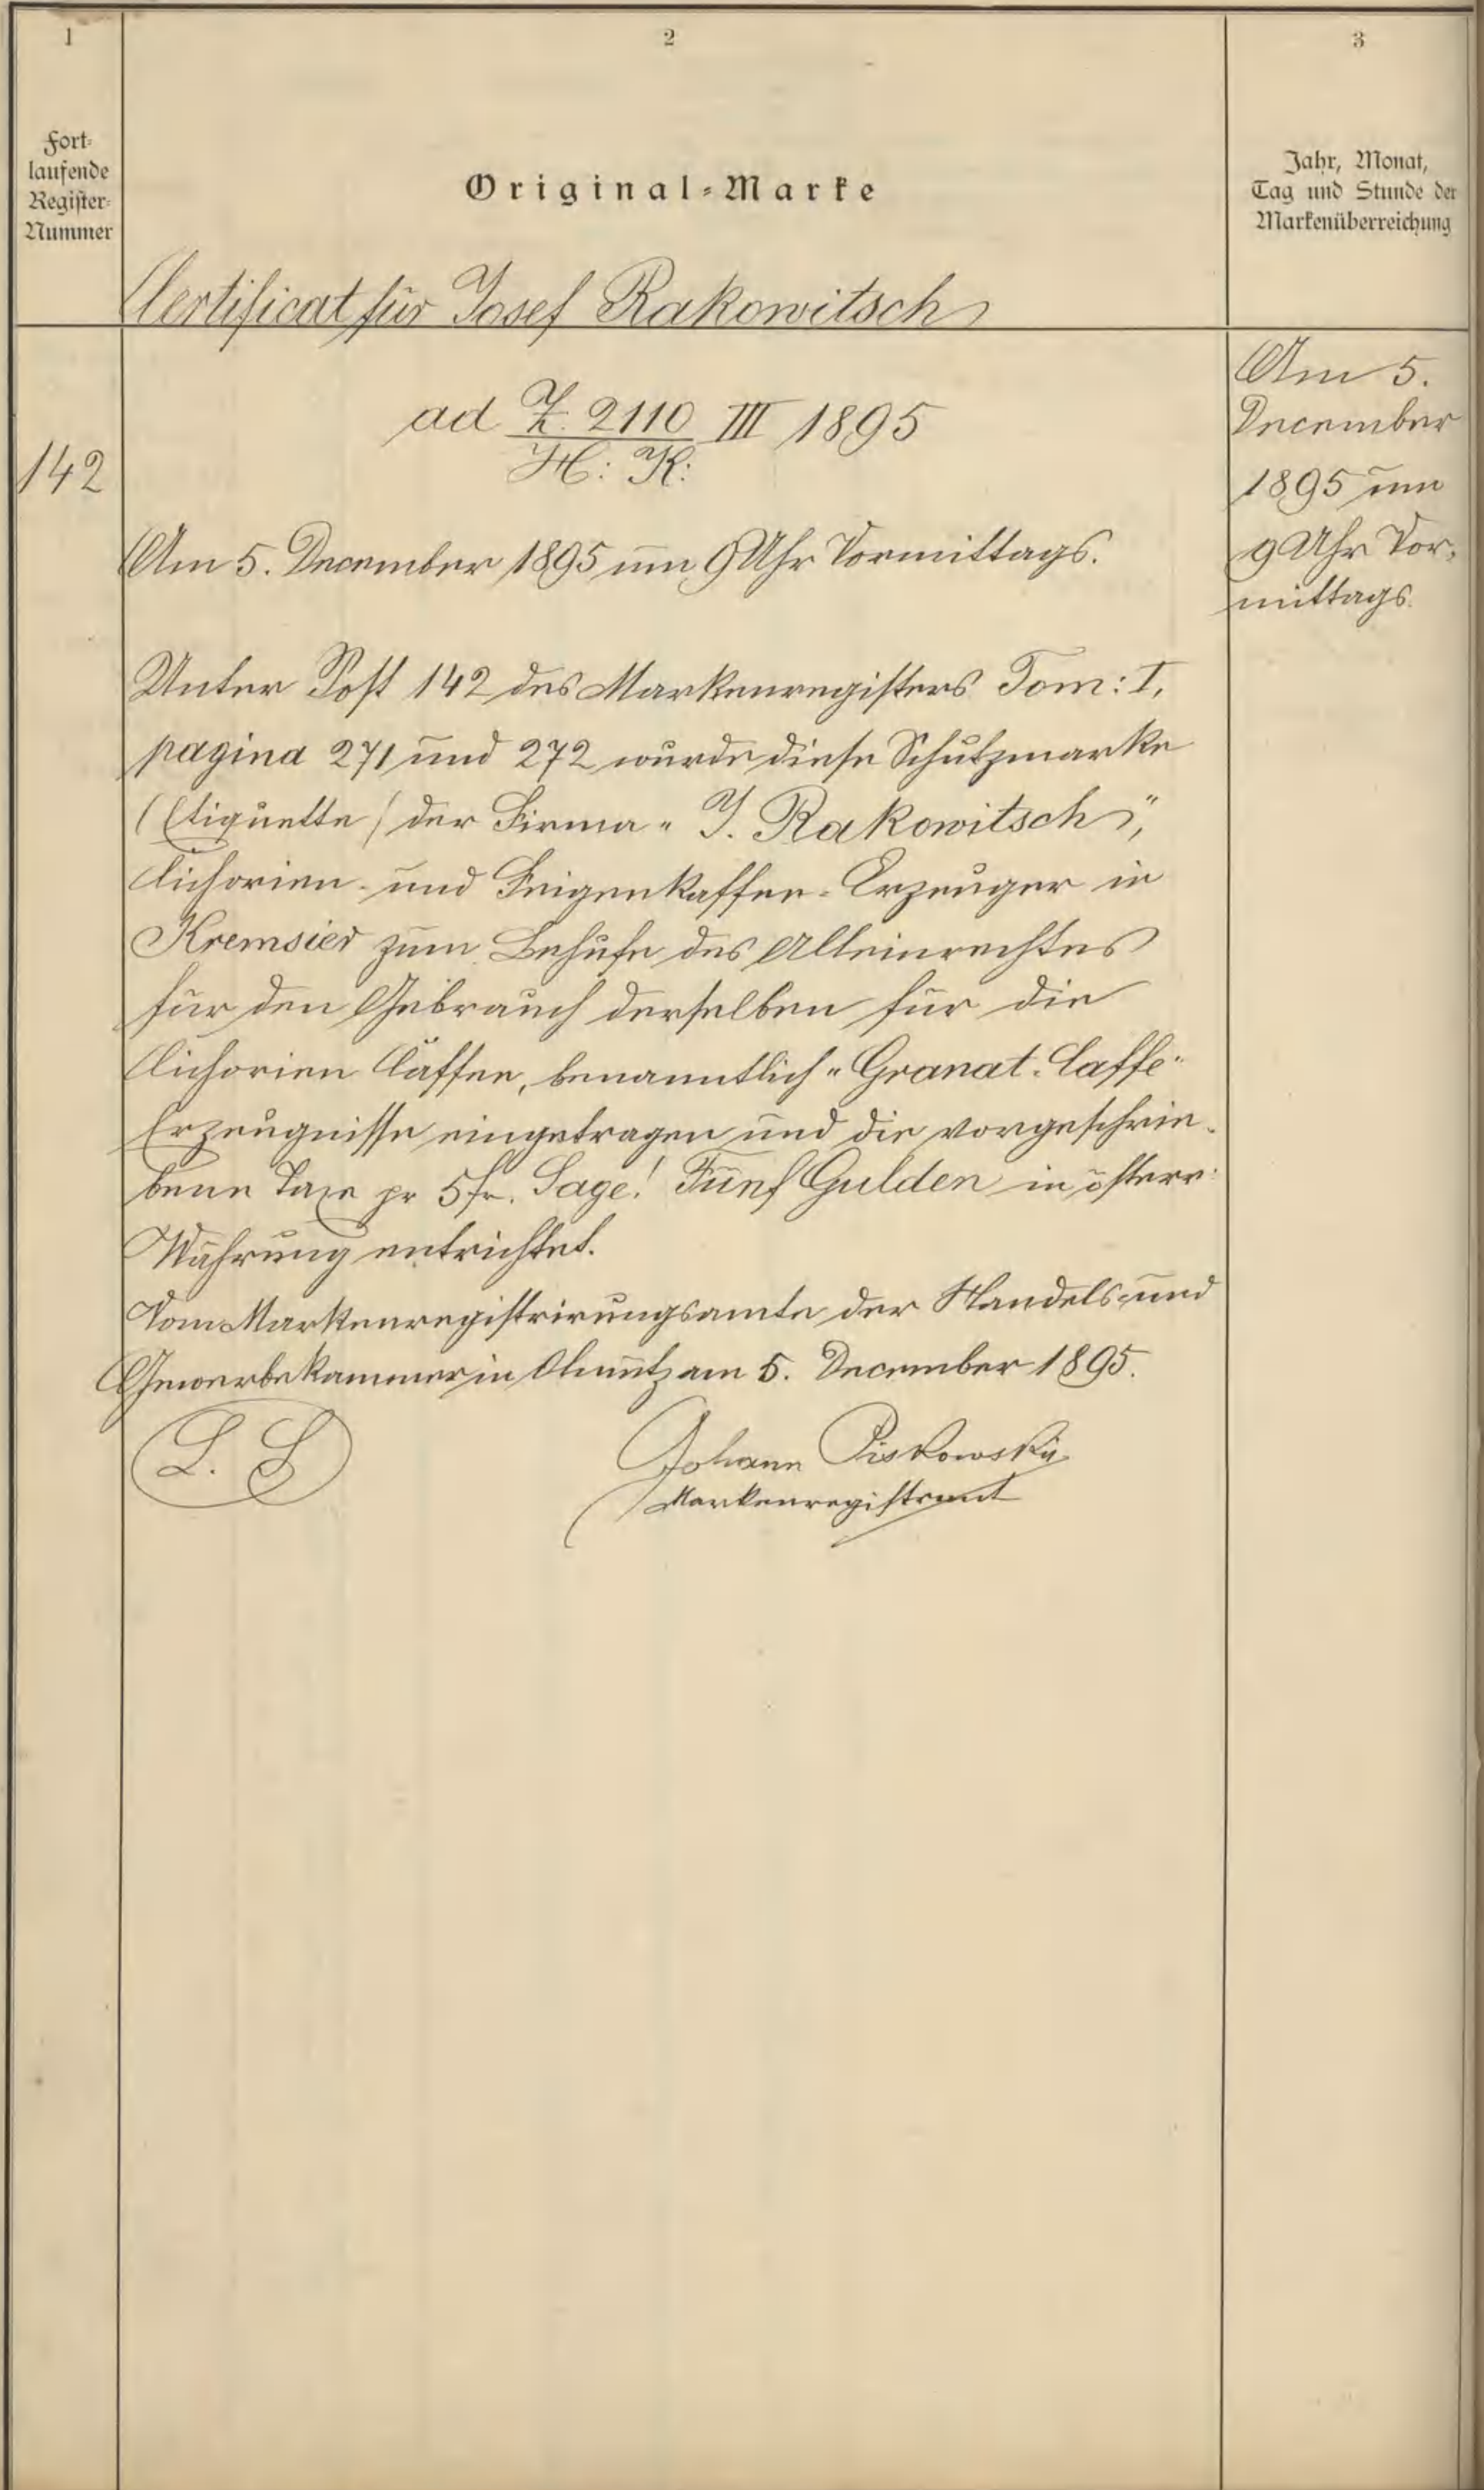 1
2
3
Fort-
laufende
Register-
Nummer
Original-Marke
Jahr, Monat,
Tag und Stunde der
Markenüberreichung
Certificat für Josef Rakowitsch
142
ad Z. 2110 III 1895
H: K:
Am 5. December 1895 um 9 Uhr Vormittags.
Unter Post 142 des Markenregisters Tom: I,
pagina 271 und 272 wurde diese Schutzmarke
(Etiquette) der Firma „J. Rakowitsch",
Cichorien- und Feigenkaffee-Erzeuger in
Kremsier zum Behufe des Alleinrechtes
für den Gebrauch derselben für die
Cichorien Caffee, benanntlich „Granat-Caffe"
Erzeugnisse eingetragen und die vorgeschrie-
bene Taxe pr 5 fr. Sage! Fünf Gulden in österr:
Währung entrichtet.
Vom Markenregistrirungsamte der Handels- und
Gewerbekammer in Olmütz am 5. December 1895.
L. S
Johann Piskowski
Markenregistrant
Am 5.
December
1895 um
9 Uhr Vor-
mittags